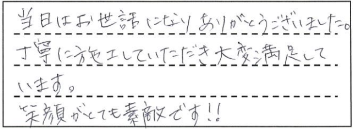 当日はお世話になりありがとうございました。
丁寧に施工していただき大変満足して
います。
笑顔がとても素敵です!!